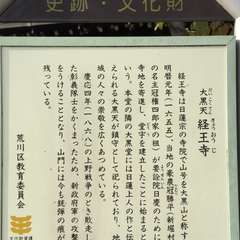 史跡・文化財
だいこくてん きょうおうじ
大黒天 経王寺
経王寺は日蓮宗の寺院で山号を大黒山と称す
明暦元年(一六五五)、当地の豪農冠勝平(新堀村
の名主冠権四郎家の祖)が要詮院日慶のために
寺地を寄進し、堂宇を建立したことに始まると
いう。本堂の隣の大黒堂には日蓮上人の作と伝
えられる大黒天が鎮守として祀られており、地
域の人々の崇敬を広くあつめている。
慶応四年(一八六八)の上野戦争のとき敗走し
た彰義隊士をかくまったため、新政府軍の攻撃
をうけることとなり、山門には今も銃弾の痕が
残っている。
荒川区教育委員会